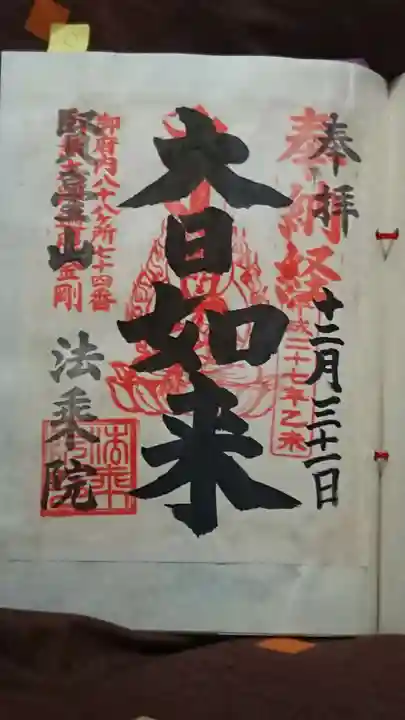 奉拝
十二月三十一日
奉納経
平成二十七年乙未
大日如来
御府内八十八ヶ所七十四番
賢臺山
法乗院